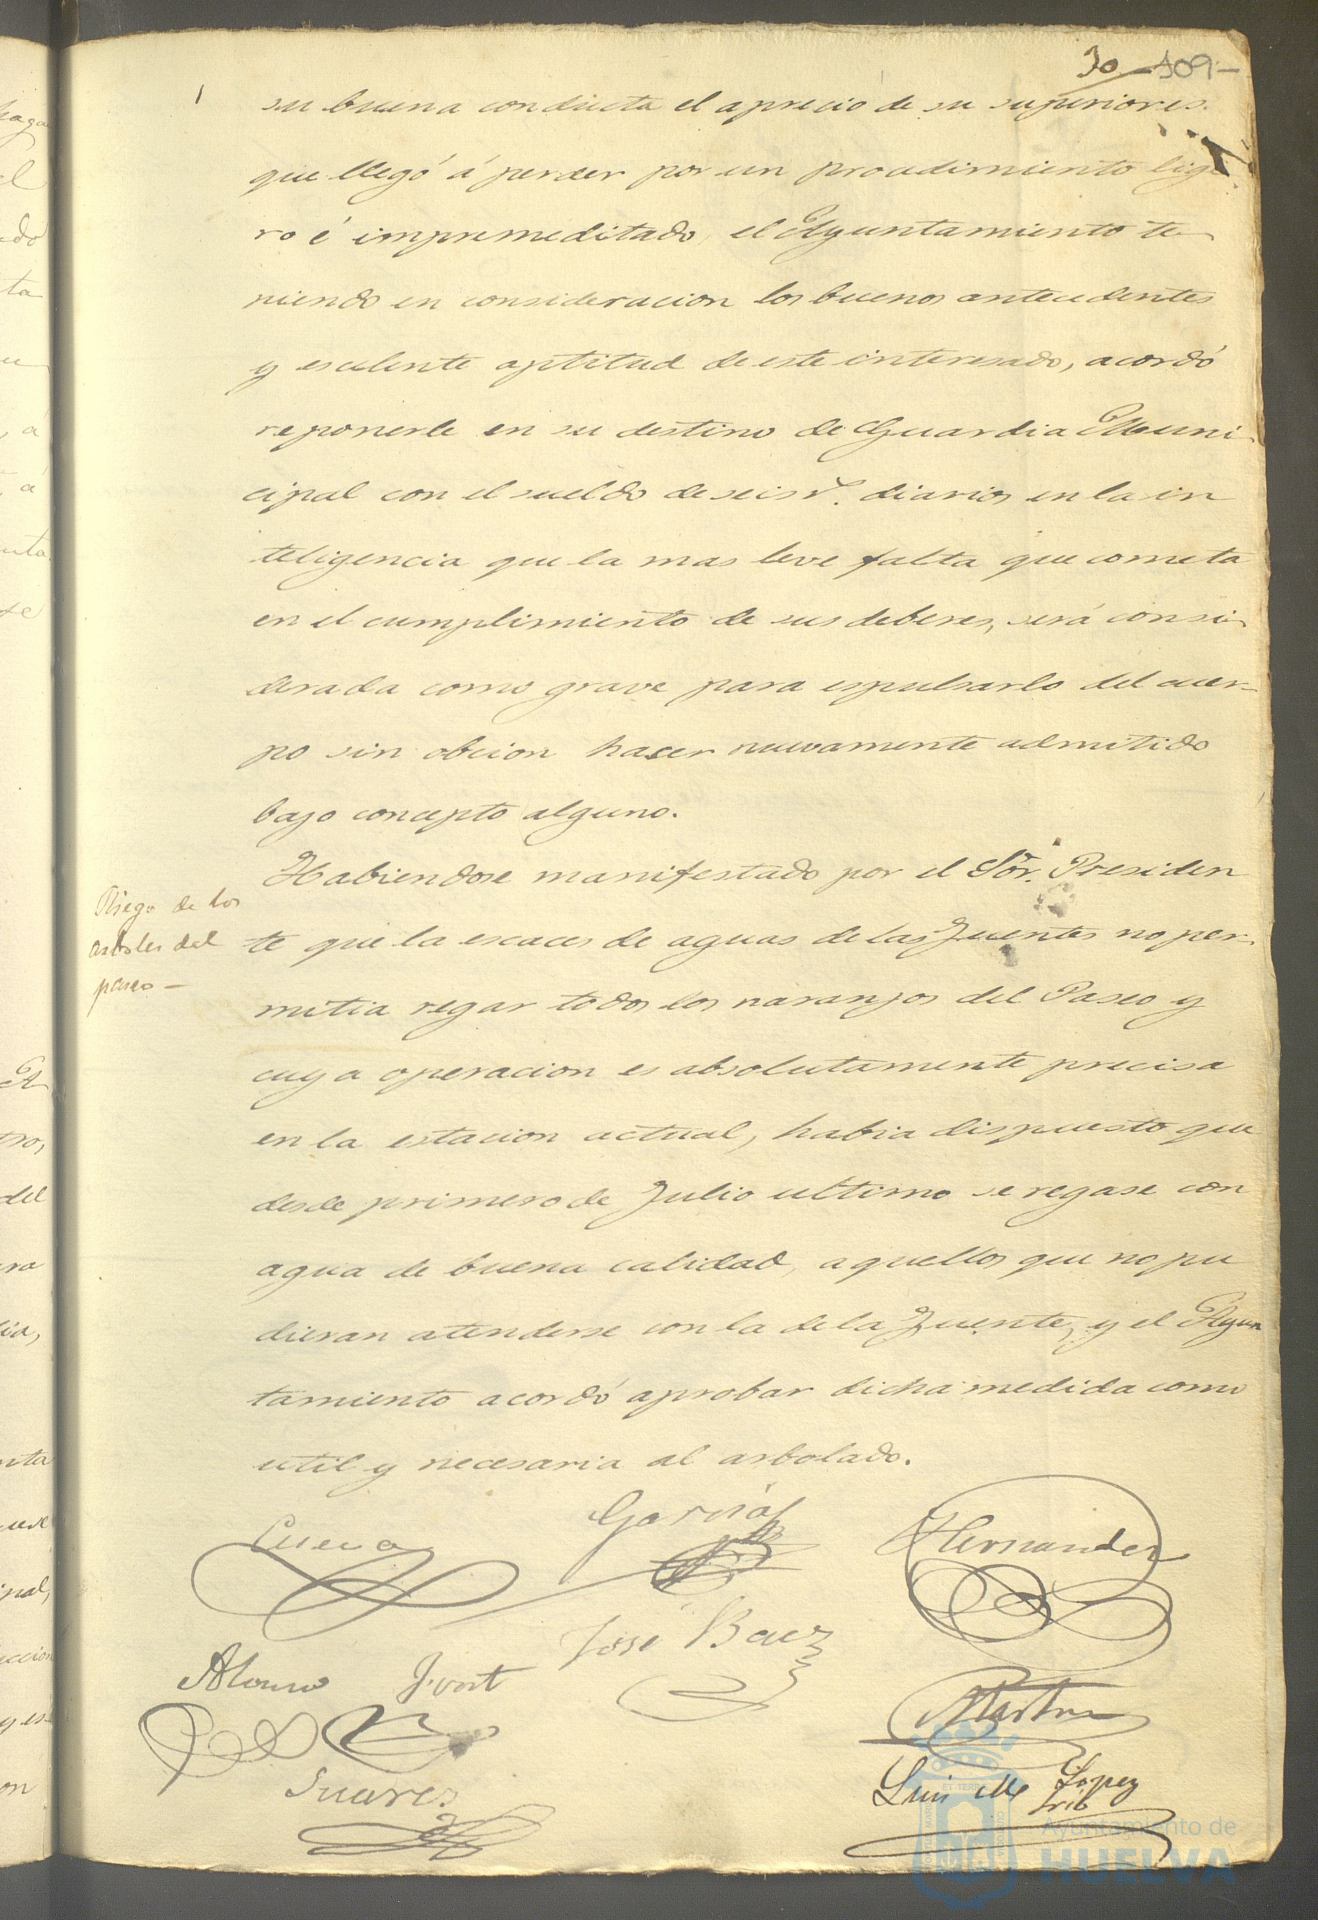 30 109-
su buena conducta el aprecio de su superiores.
que llegó á perder por un procedimiento lige
ro é impremeditado, el Ayuntamiento te
niendo en consideracion los buenos antecedentes
y esculente aptitud de este interesado, acordó
reponerle en su destino de Guardia Muni
cipal con el sueldo de seis r.ˢ diarios en la in
teligencia que la mas leve falta que cometa
en el cumplimiento de sus deberes, será consi
derada como grave para espulsarlo del cuer-
po sin obcion hacer nuevamente admitido
bajo concepto alguno.
Riego de los
arboles del
paseo -
Habiendose manifestado por el Sôr. Presiden
te que la escaces de aguas de las Fuentes no per-
mitia regar todos los naranjos del Paseo y
cuya operacion es absolutamente precisa
en la estacion actual, habia dispuesto que
desde primero de Julio ultimo se regase con
agua de buena calidad, aquellos que no pu
dieran atenderse con la de la Fuente, y el Ayun
tamiento acordó aprobar dicha medida como
util y necesaria al arbolado.
Cueva Garcia Hernandez
José Baez
Alonso
Martin
Suares
Luis M Lopez
Srio
Ayuntamiento de
HUELVA